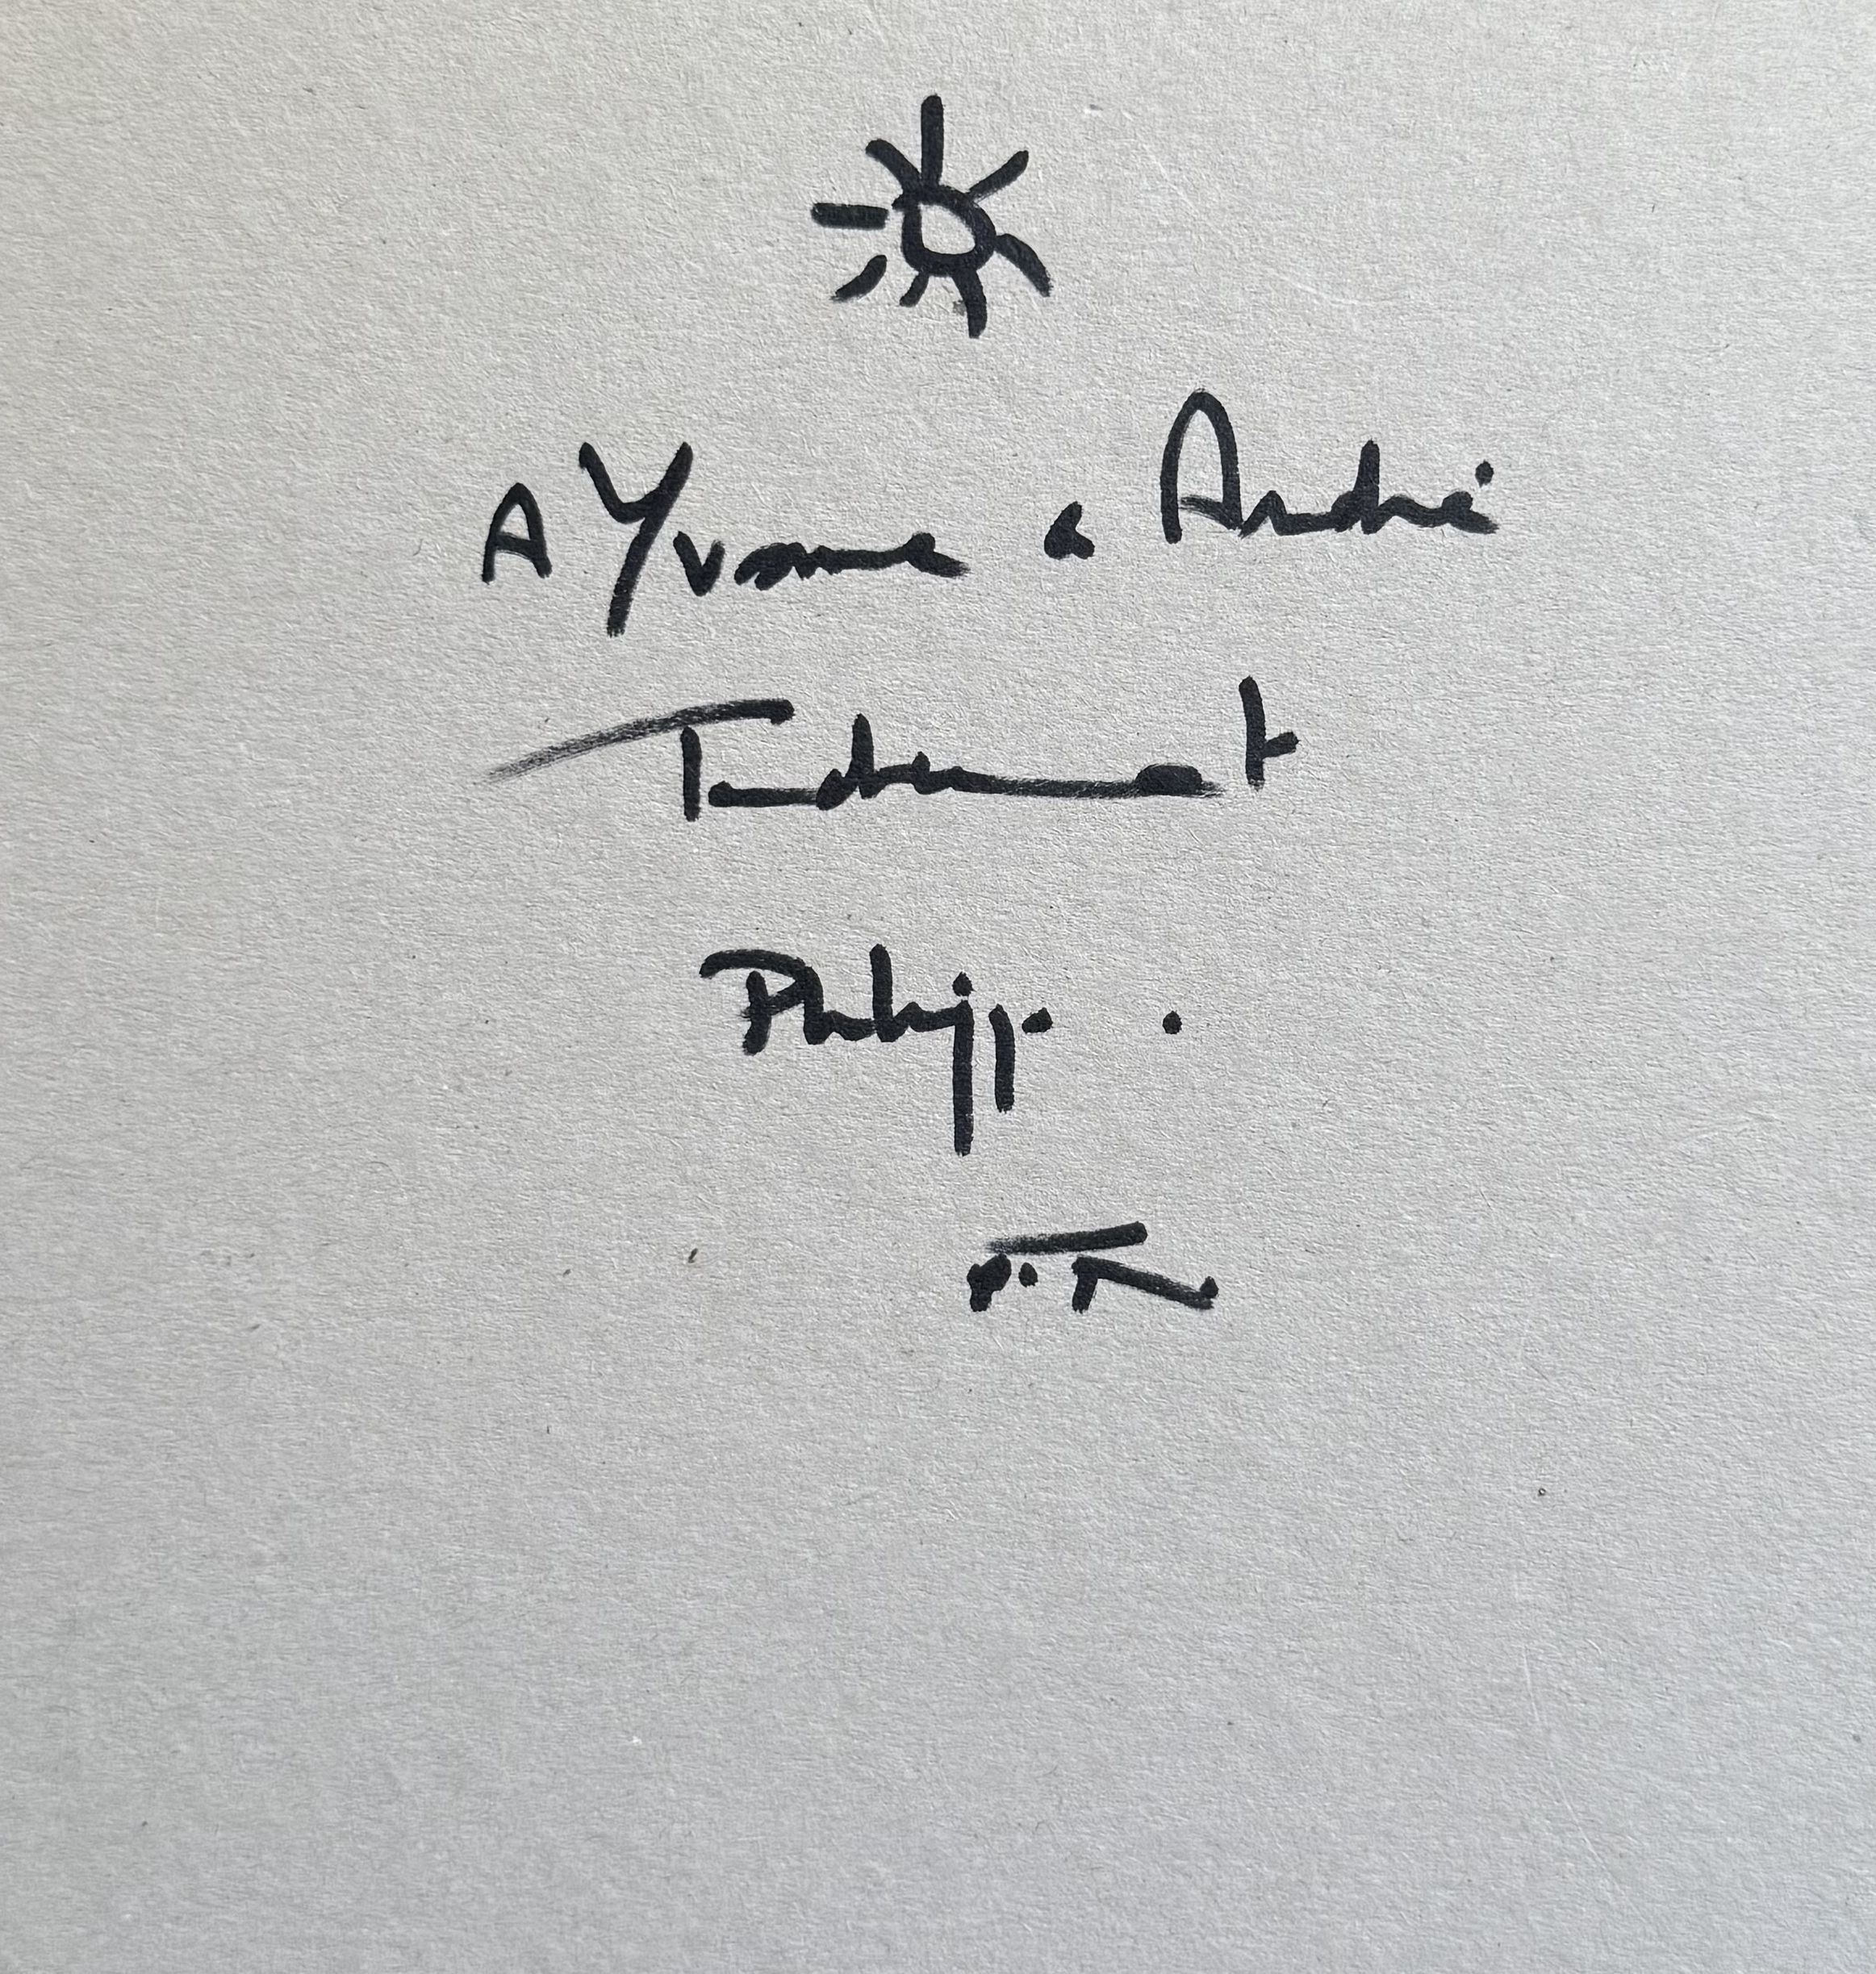 A Yvonne & André
Tendrement
Philippe.
P.T.